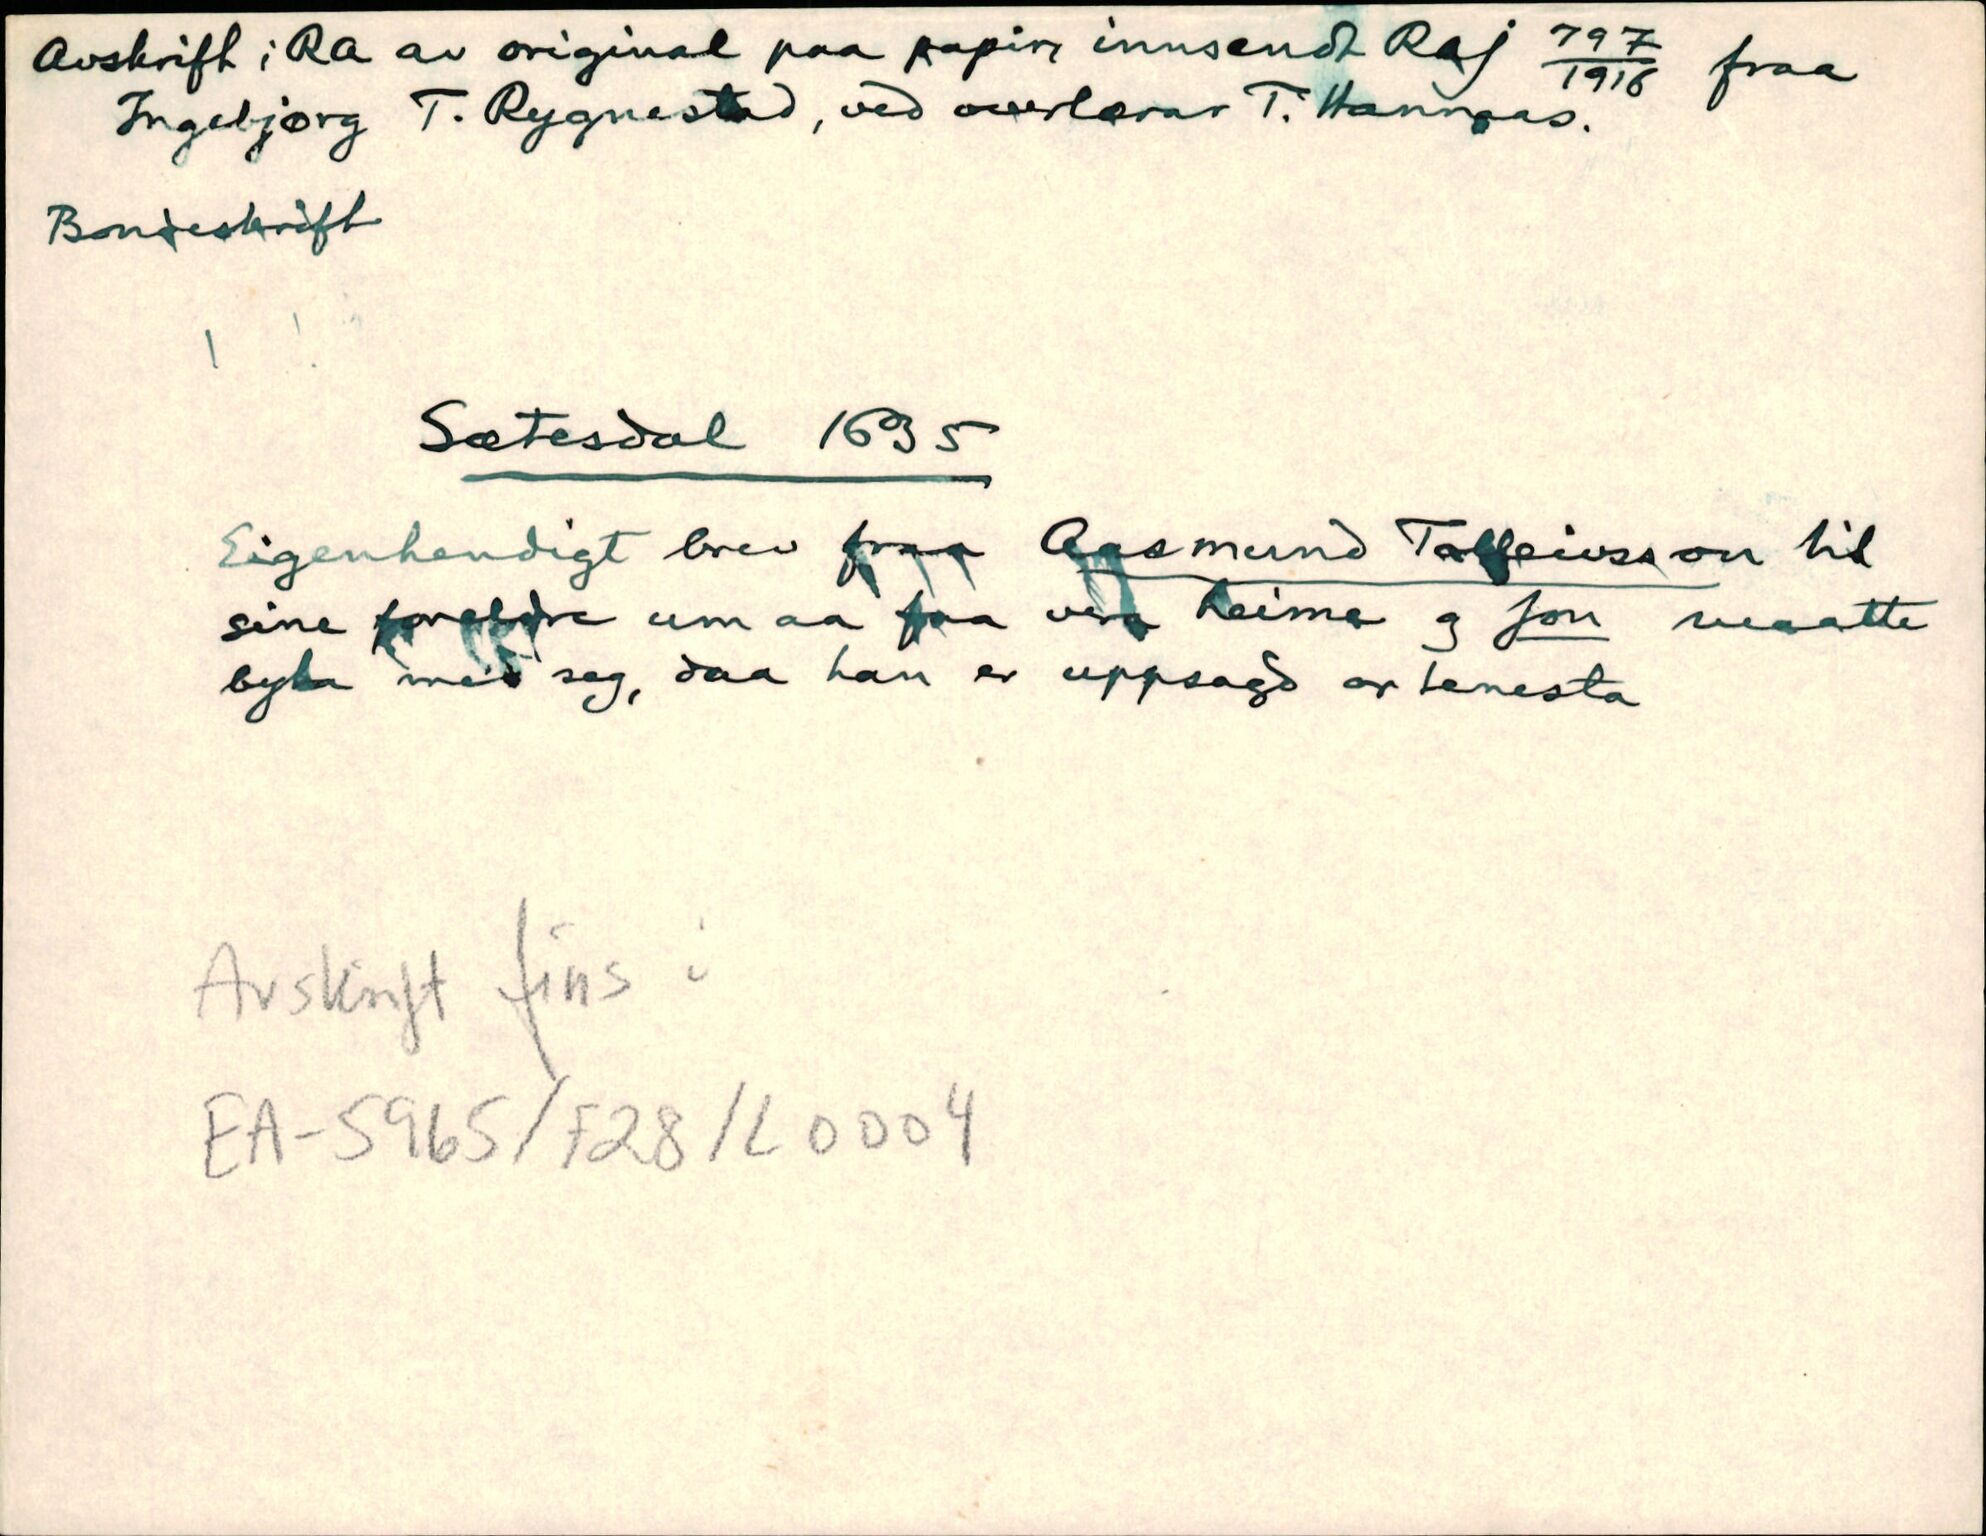 Avskrift i RA av original paa papir, innsendt Raj 797/1916 fraa
Ingebjørg T. Rygnestad, ved overlærar T. Hannaas.
Bondeskrift
Sætesdal 1695
Eigenhendigt brev fraa Aasmund Talleivsson til
sine foreldre um aa faa vera heime og Jon maatte
byta med seg, daa han er uppsagd or tenesta
Avskrift fins i
EA-5965/F28/L0004